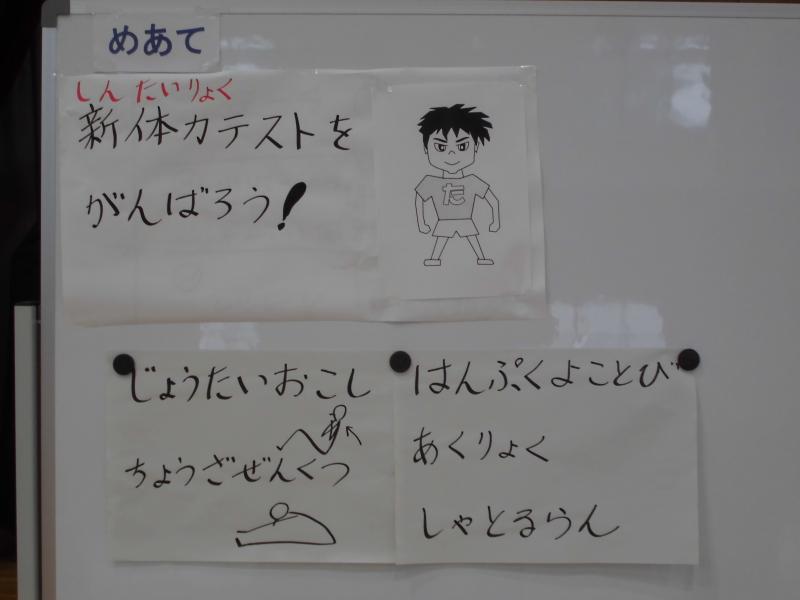 めあて
しんたいりょく
新体力テストを
がんばろう!
た
じょうたいおこし
ちょうざぜんくつ
はんぷくよことび
あくりょく
しゃとるらん